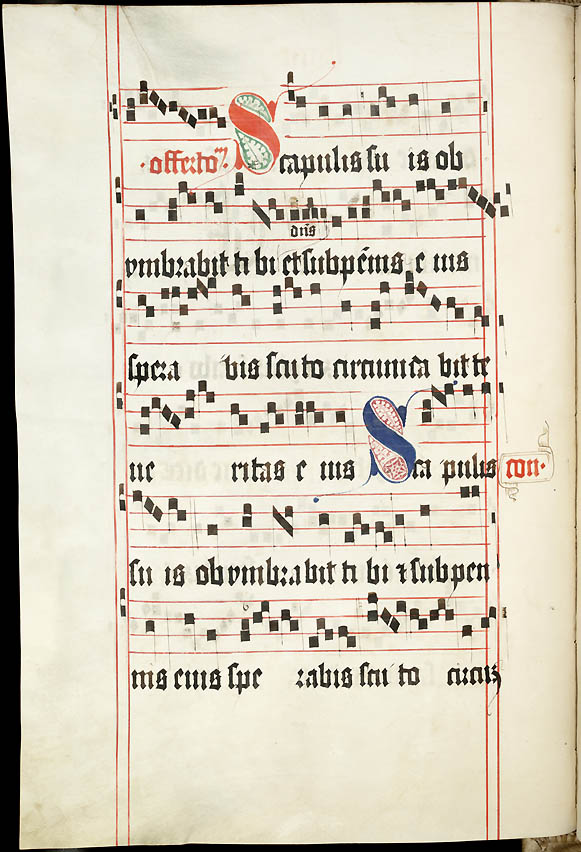 ·offerto͞ꝝ· Scapulis su is ob
dn̄s
vmbrabit ti bi et sub pēnis e ius
spera bis scu to circumda bit te
ue ritas e ius Sca pulis com·
su is ob vmbrabit ti bi ⁊ sub pen
nis eius spe rabis scu to circuꝫ